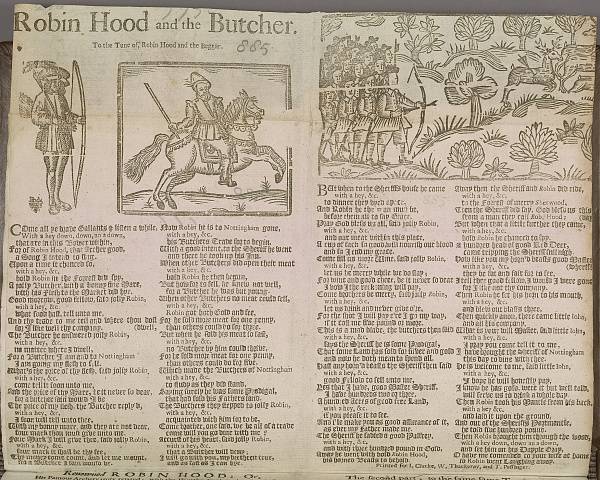 Robin Hood and the Butcher.
To the Tune of, Robin Hood and the Beggar.
885
COme all ye brave Gallants & listen a while,
With a hey down, down, an a down,
that are in this Bower within,
For of Robin Hood, that Archer good,
a Song I intend to sing.
Upon a time it chanced so,
with a hey, &c.
bold Robin in the Forrest did spy,
A jolly Butcher, with a bonny fine Mare,
with his Flesh to the Market did hye.
Good morrow, good fellow, said jolly Robin,
with a hey, &c.
what food hast, tell unto me,
And thy trade to me tell and where thou dost
for I like well thy company. (dwell,
The Butcher he answered jolly Robin,
with a hey, &c.
no matter where I dwell,
For a Butcher I am and to Nottingham
I am going my flesh to sell.
What's the price of thy flesh, said jolly Robin,
with a hey, &c.
come tell it soon unto me,
And the price of thy Mare, be it never so dear,
for a butcher fain would I be
The price of my flesh, the Butcher reply'd,
with a hey, &c.
I soon will tell unto thee,
With my bonny mare, and they are not dear,
four mark thou must give unto me.
Four mark I will give thee, said jolly Robin,
with a hey, &c.
four mark it shall be thy fee,
Thy mony come count, and let me mount,
for a Butcher I fain would be.
Now Robin he is to Nottingham gone,
with a hey, &c.
his Butchers Trade for to begin.
With a good intent, to the Sheriff he went
and there he took up his Inn.
When other Butchers did open their meat
with a hey, &c.
bold Robin he then begun,
But how for to sell, he knew not well,
for a Butcher he was but young.
When other Butchers no meat could sell,
with a hey, &c.
Robin got both Gold and fee,
For he sold more meat for one penny,
than others could do for three.
But when he sold his meat so fast,
with a hey, &c.
no Butcher by him could thrive,
For he sold more meat for one penny,
than others could do for five.
Which made the Butchers of Nottingham
with a hey, &c.
to study as they did stand,
Saying surely he was some Prodigal,
that had sold his Fathers land.
The Butchers they stepped to jolly Robin,
with a hey, &c.
acquainted with him for to be,
Come brother, one said, we be all of a trade
come will you go dine with me?
Accurst of his heart, said jolly Robin,
with a hey, &c.
that a Butcher will deny;
I will go with you, my brethren true,
and as fast as I can hye.
BUt when to the Sheriffs house he came
with a hey, &c.
to dinner they hied apace,
And Robin he the man must be,
before them all to say Grace.
Pray God bless us all, said jolly Robin,
with a hey, &c.
and our meat within this place,
A cup of sack so good will nourish our blood
and so I end my grace.
Come fill us more Wine, said jolly Robin,
with a hey, &c.
let us be merry while we do stay;
For wine and good cheer, be it never so dear
I vow I the reckoning will pay.
Come brothers be merry, said jolly Robin,
with a hey, &c.
let us drink and never give o're,
For the shot I will pay e're I go my way,
if it cost me five pound or more.
This is a mad blade, the butchers then said
with a hey, &c.
says the Sheriff he is some Prodigal,
That some Land has sold for silver and gold
and now he doth mean to spend all.
Hast any horn beasts the Sheriff then said
with a hey, &c.
good fellow to sell unto me,
Yes that I have, good Master Sheriff,
I have hundreds two or three.
And a hundred acres of good free Land,
with a hey, &c.
if you please it to see,
And I'le make you as good assurance of it,
as ever my Father made me.
The Sheriff he saddled a good Palfrey,
with a hey, &c.
and with three hundred pound in Gold,
Away he went with bold Robin Hood,
his horned Beasts to behold.
Away then the Sheriff and Robin did ride,
with a hey, &c.
to the Forrest of merry Sherwood,
Then the Sheriff did say, God bless us this
from a man they call Robin Hood. (day
But when that a little further they came,
with a hey, &c.
bold Robin he chanced to spy
A hundred head of good Red Deer,
come tripping the Sheriff full nigh
How like you my horn'd beasts good Master
with a hey, &c. (Sheriff
they be fat and fair for to see.
I tell thee good fellow, I would I were gone
for I like not thy company.
Then Robin he set his horn to his mouth,
with a hey, &c.
and blew out blasts three,
Then quickly anon, there came little John,
and all his company.
What is your will Master, said little John,
with a hey, &c.
I pray you come tell it to me,
I have brought the Sheriff of Nottingham
this day to dine with thee.
He is welcome to me, said little John,
with a hey, &c.
I hope he will honestly pay,
I know he has gold, were it but well told,
will serve us to drink a whole day
Then Robin took his Mantle from his back,
with a hey, &c.
and laid it upon the ground,
And out of the Sheriffs Portmantle,
he told three hundred pound.
Then Robin brought him through the wood,
with a hey down, down an a down,
and set him on his Dapple Gray,
O have me commended to your wife at home
so Robin went laughing away.
Printed for I. Clarke, W. Thackeray, and T. Passinger.
Renowned ROBIN HOOD; Or,
The second part, to the same Tune